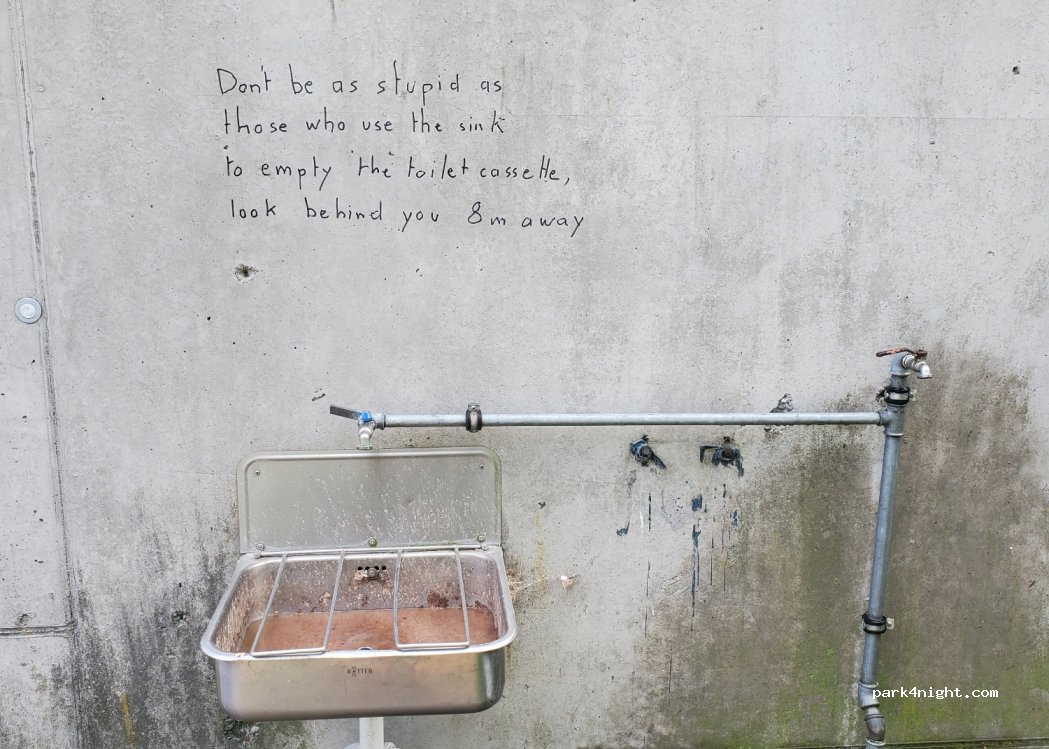 Don't be as stupid as
those who use the sink
to empty the toilet cassette,
look behind you 8m away
park4night.com